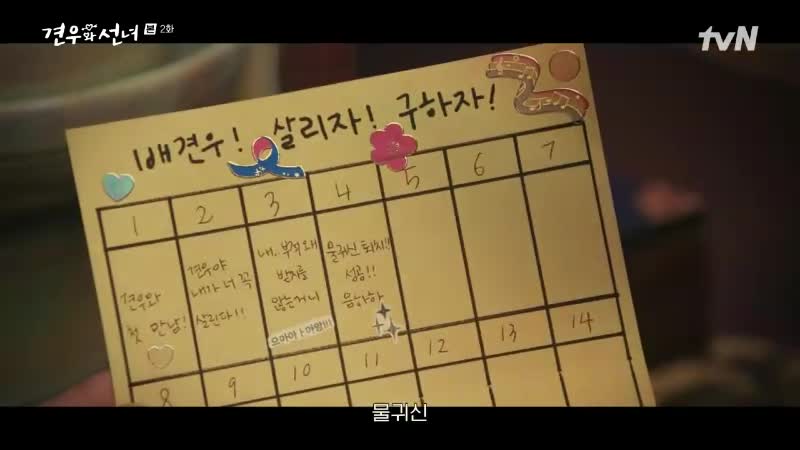 견우와 선녀 본 2화
tvN
배견우! 살리자! 구하자!
1 2 3 4 5 6 7
견우와
첫 만남!
견우야
내가 너 꼭
살린다!!
내.. 부적 왜
받지를
않는거니
으아아ㅏ아앙!!!
물귀신 퇴치!!
성공!!
음하하
8 9 10 11 12 13 14
물귀신